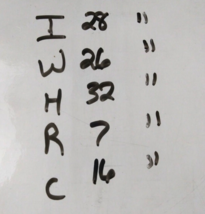 I 28 "
W 26 "
H 32 "
R 7 "
C 16 "